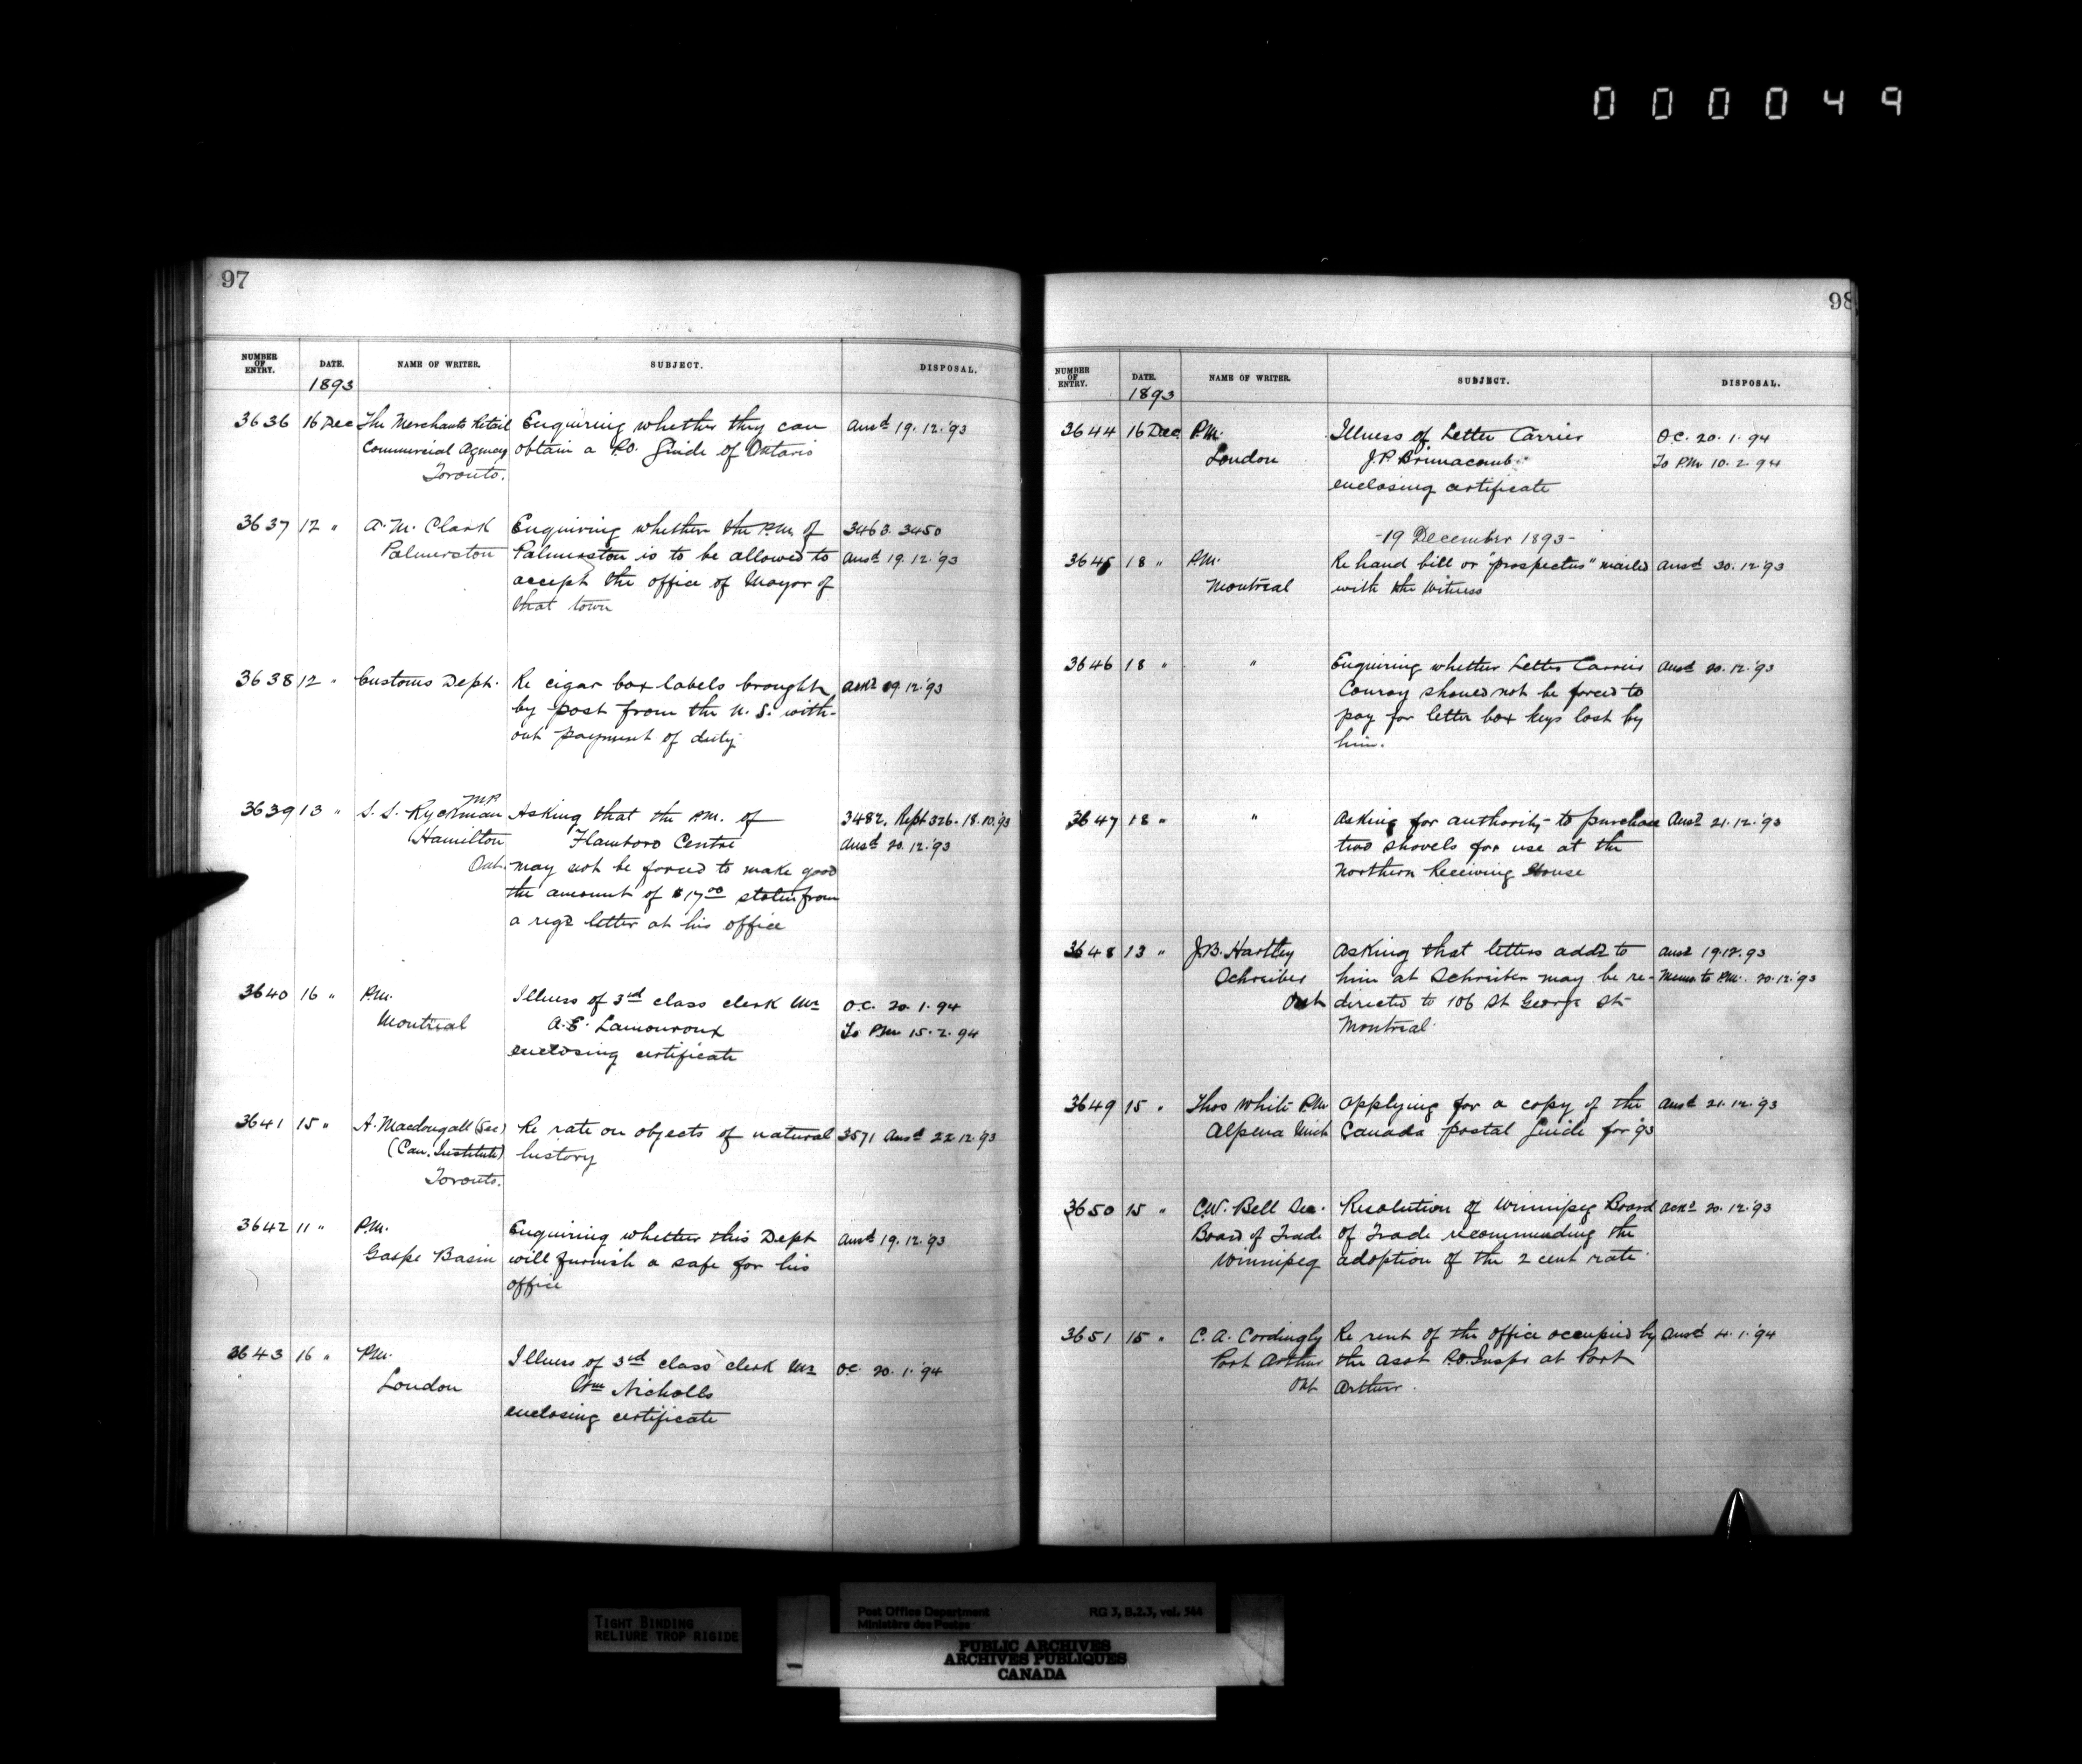 000049
97
NUMBER OF ENTRY. DATE. NAME OF WRITER. SUBJECT. DISPOSAL.
1893
3636 16 Dec The Merchants Retail Enquiring whether they can Ansd 19.12.'93
Commercial Agency obtain a P.O. Guide of Ontario
Toronto.
3637 12 " A. M. Clark Enquiring whether the P.M. of 3463. 3450
Palmerston Palmerston is to be allowed to Ansd 19.12.'93
accept the office of Mayor of
that town
3638 12 " Customs Dept. Re cigar box labels brought Ackd 19.12.'93
by post from the U.S. with-
out payment of duty
3639 13 " S. S. Ryckman MP Asking that the P.M. of 3482. Rept 326. 18.10.'93
Hamilton Flamboro Centre Ansd 20.12.'93
Ont. may not be forced to make good
the amount of $17.00 stolen from
a regd letter at his office
3640 16 " P.M. Illness of 3rd class clerk Mr O.C. 20.1.94
Montreal A. E. Lamouroux To P.M. 15.2.94
enclosing certificate
3641 15 " A. Macdougall (Sec) Re rate on objects of natural 3571 Ansd 22.12.'93
(Can. Institute) history
Toronto.
3642 11 " P.M. Enquiring whether this Dept Ansd 19.12.'93
Gaspe Basin will furnish a safe for his
office
3643 16 " P.M. Illness of 3rd class clerk Mr O.C. 20.1.'94
London Wm Nicholls
enclosing certificate
98
NUMBER OF ENTRY. DATE. NAME OF WRITER. SUBJECT. DISPOSAL.
1893
3644 16 Dec P.M. Illness of Letter Carrier O.C. 20.1.94
London J. P. Brimacomb To P.M. 10.2.94
enclosing certificate
-19 December 1893-
3645 18 " P.M. Re hand bill or "prospectus" mailed Ansd 30.12.'93
Montreal with the Witness
3646 18 " " Enquiring whether Letter Carrier Ansd 20.12.'93
Conroy should not be forced to
pay for letter box keys lost by
him.
3647 18 " " Asking for authority to purchase Ansd 21.12.'93
two shovels for use at the
Northern Receiving House
3648 13 " J. B. Hartley Asking that letters addd to Ansd 19.12.93
Schreiber him at Schreiber may be re- Memo to P.M. 20.12.'93
Ont directed to 106 St George St
Montreal
3649 15 " Thos White P.M. Applying for a copy of the Ansd 21.12.'93
Alpena Mich Canada postal Guide for '93
3650 15 " C.W. Bell Sec. Resolution of Winnipeg Board Ackd 20.12.'93
Board of Trade of Trade recommending the
Winnipeg adoption of the 2 cent rate
3651 15 " C. A. Cordingly Re rent of the office occupied by Ansd 4.1.'94
Port Arthur the Asst P.O. Inspr at Port
Ont Arthur.
TIGHT BINDING
RELIURE TROP RIGIDE
Post Office Department RG 3, B.2.3, vol. 544
Ministère des Postes
PUBLIC ARCHIVES
ARCHIVES PUBLIQUES
CANADA